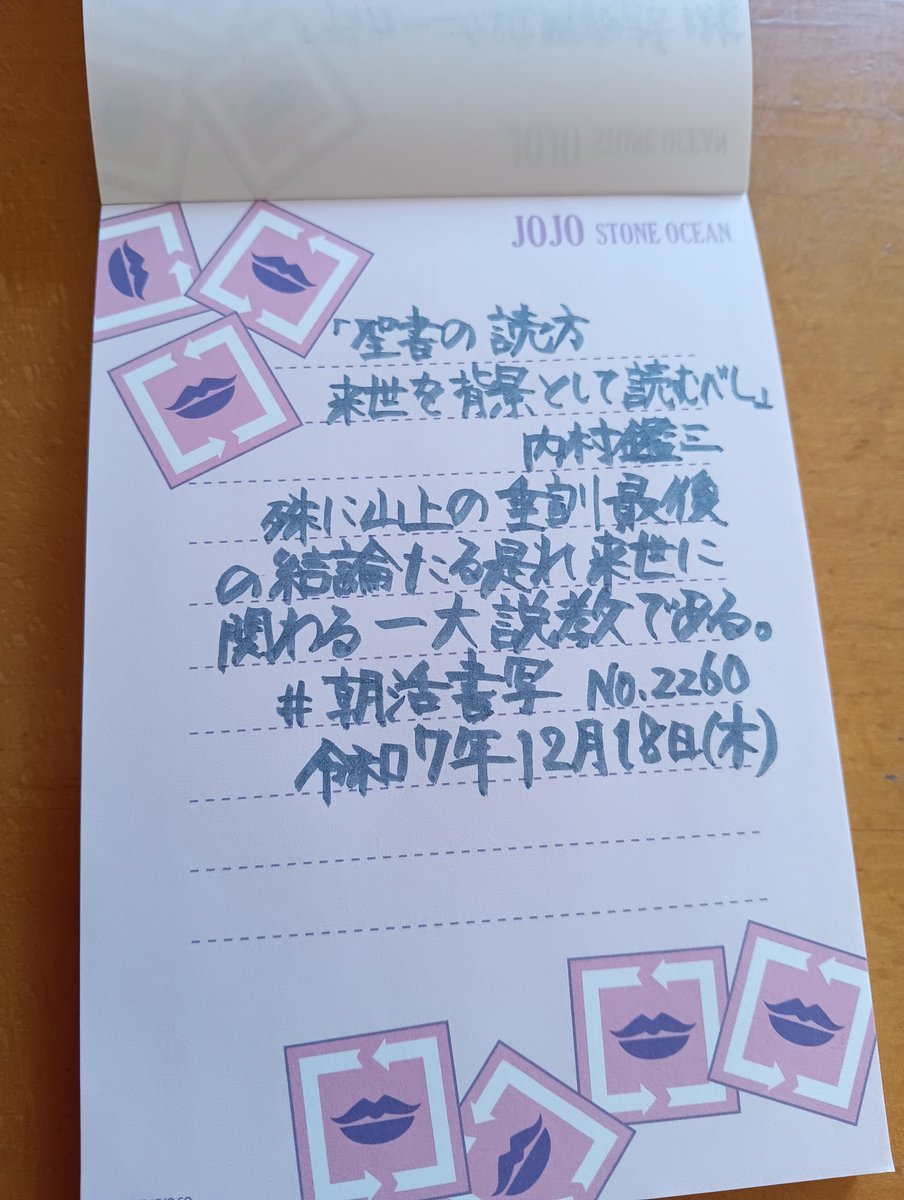 JOJO STONE OCEAN
「聖書の読方
来世を背景として読むべし」
内村鑑三
殊に山上の垂訓最後
の結論たる是れ来世に
関わる一大説教である。
#朝活書写 No.2260
令和7年12月18日(木)